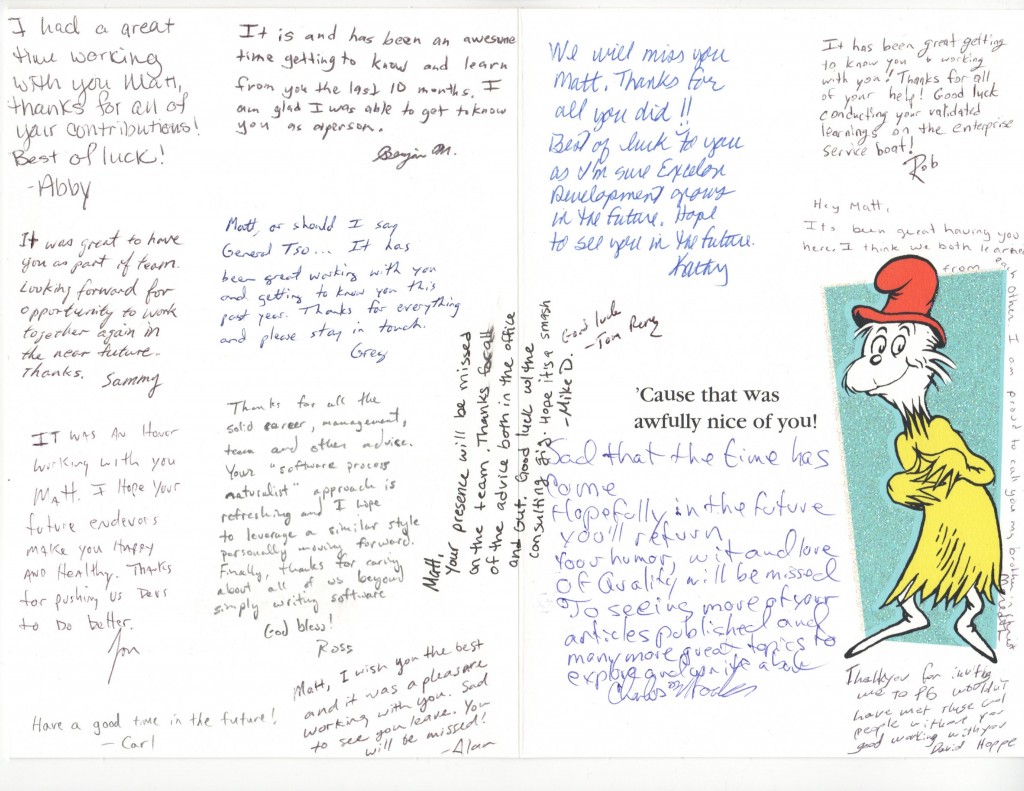 I had a great
time working
with you Matt,
thanks for all of
your contributions!
Best of luck!
-Abby
It is and has been an awesome
time getting to know and learn
from you the last 10 months. I
am glad I was able to get to know
you as a person.
M.
It was great to have
you as part of team.
Looking forward for
opportunity to work
together again in
the near future.
Thanks. Sammy
Matt, or should I say
General Tso... It has
been great working with you
and getting to know you this
past year. Thanks for everything
and please stay in touch.
Greg
IT WAS AN HONOR
WORKING WITH YOU
MATT. I HOPE YOUR
future endevors
MAKE YOU HAPPY
AND HEALTHY. THANKS
for pushing us DEVS
to DO better.
Jon
Thanks for all the
solid career, management,
team and other advice.
Your "software process
naturalist" approach is
refreshing and I hope
to leverage a similar style
personally moving forward.
Finally, thanks for caring
about all of us beyond
simply writing software
God bless!
Ross
Have a good time in the future!
- Carl
Matt, I wish you the best
and it was a pleasure
working with you. Sad
to see you leave. You
will be missed!
-Alan
Matt,
Your presence will be missed
on the team. Thanks for all
of the advice both in the office
and out. Good luck w/ the
consulting gig. Hope it's a smash
-Mike D.
Good luck
-Tom
We will miss you
Matt. Thanks for
all you did !!
Best of luck to you
as I'm sure Excelon
Development grows
in the future. Hope
to see you in the future.
Kathy
It has been great getting
to know you & working
with you! Thanks for all
of your help! Good luck
conducting your validated
learnings on the enterprise
service boat!
Rob
Hey Matt,
Its been great having you
here. I think we both learned
from each other. I am proud to call you my brother in
'Cause that was
awfully nice of you!
Sad that the time has
come
Hopefully in the future
you'll return
Your humor, wit and love
of Quality will be missed
To seeing more of your
articles published and
many more great topics to
explore and write about
Charles
Thank you for inviting
me to PG wouldn't
have met these cool
people without you
good working with you
David Hoppe